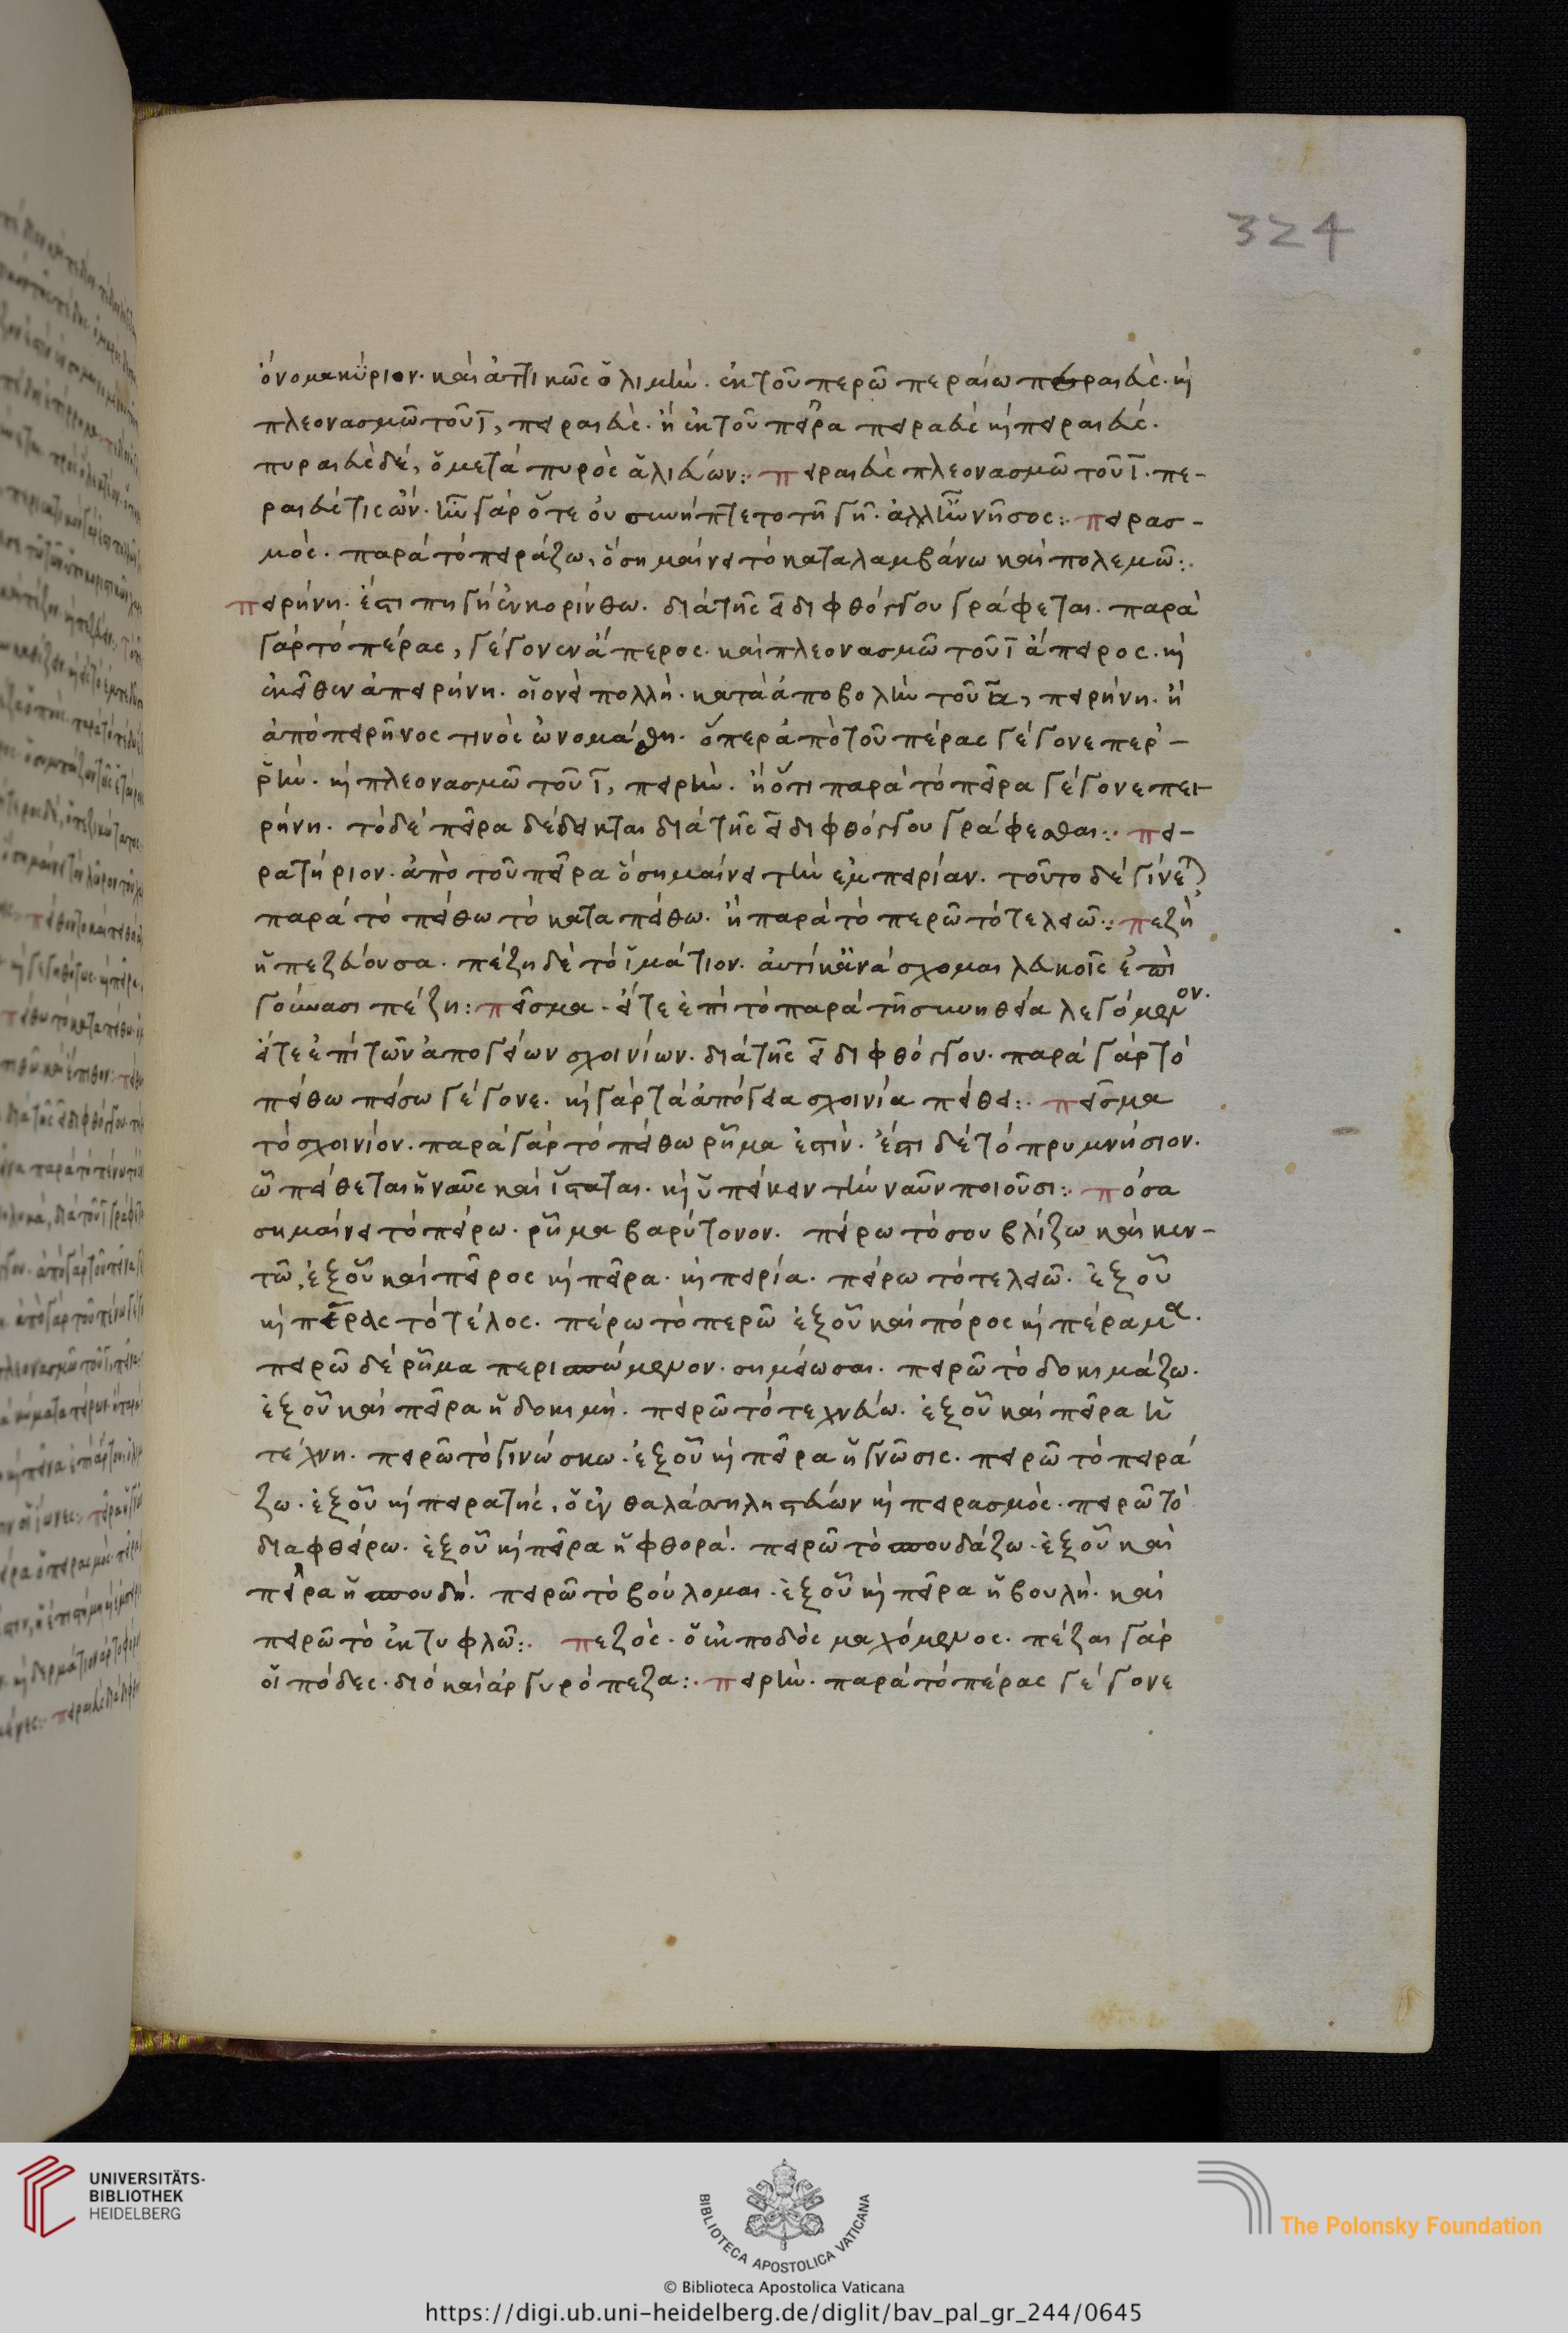 324
ὄνομα κύριον. καὶ ἀττικῶς ὁ λιμήν. ἐκ τοῦ περῶ περαίω περαιεύς. καὶ
πλεονασμῶ τοῦ ϊ, πειραιεύς. ἢ ἐκ τοῦ πεῖρα πειραεύς καὶ πειραιεύς.
πυραιεὺς δέ, ὁ μετὰ πυρὸς ἁλιεύων:. πειραιεὺς πλεονασμῶ τοῦ ϊ. πε-
ραιεύς τις ὤν. ἦν γάρ ὅτε οὐ συνήπτετο τῆ γῆ. ἀλλ' ἦν νῆσος:. πειρασ-
μός. παρὰ τὸ πειράζω, ὃ σημαίνει τὸ καταλαμβάνω καὶ πολεμῶ:.
πειρήνη. ἔστι πηγὴ ἐν κορίνθω. διὰ τῆς ει διφθόγγου γράφεται. παρὰ
γὰρ τὸ πέρας, γέγονεν ἄπερος. καὶ πλεονασμῶ τοῦ ϊ ἄπειρος. καὶ
ἐκεῖθεν ἀπειρήνη. οἱονεὶ πολλή. κατὰ ἀποβολὴν τοῦ α, πειρήνη. ἢ
ἀπὸ πειρῆνος τινὸς ὠνομάσθη. ὅπερ ἀπὸ τοῦ πέρας γέγονε περ-
ρήν. καὶ πλεονασμῶ τοῦ ϊ, πειρήν. ἢ ὅτι παρὰ τὸ πεῖρα γέγονε πει-
ρήνη. τὸ δὲ πεῖρα δέδεικται διὰ τῆς ει διφθόγγου γράφεσθαι:. πει-
ρατήριον. ἀπὸ τοῦ πεῖρα ὃ σημαίνει τὴν ἐμπειρίαν. τοῦτο δὲ γίνεται
παρὰ τὸ πείθω τὸ καταπείθω. ἢ παρὰ τὸ περῶ τὸ τελειῶ:. πεζὴ
ἡ πεζεύουσα. πέζη δὲ τὸ ἱμάτιον. ἀντίκἀνάσχομαι λευκοῖς ἐπὶ
γούνασι πέζη: πεῖσμα. εἴτε ἐπὶ τὸ παρὰ τῆ συνηθεία λεγόμενον.
εἴτε ἐπὶ τῶν ἀπογείων σχοινίων. διὰ τῆς ει διφθόγγου. παρὰ γὰρ τὸ
πείθω πείσω γέγονε. καὶ γὰρ τὰ ἀπόγεια σχοινία πείθει:. πεῖσμα
τὸ σχοινίον. παρὰ γὰρ τὸ πείθω ρῆμα ἐστίν. ἔστι δὲ τὸ πρυμνήσιον.
ὧ πείθεται ἡ ναῦς καὶ ἵσταται. καὶ ὑπείκειν τὴν ναῦν ποιοῦσι:. πόσα
σημαίνει τὸ πείρω. ρῆμα βαρύτονον. πείρω τὸ σουβλίζω καὶ κεν-
τῶ, ἐξ οὗ καὶ πεῖρος καὶ πεῖρα. καὶ πειρία. πείρω τὸ τελειῶ. ἐξ οὗ
καὶ πέρας τὸ τέλος. πέρω τὸ περῶ ἐξ οὗ καὶ πόρος καὶ πέραμα.
πειρῶ δὲ ρῆμα περισπώμενον. σημείωσαι. πειρῶ τὸ δοκιμάζω.
ἐξ οὗ καὶ πεῖρα ἡ δοκιμή. πειρῶ τὸ τεχνεύω. ἐξ οὗ καὶ πεῖρα ἡ
τέχνη. πειρῶ τὸ γινώσκω. ἐξ οὗ καὶ πεῖρα ἡ γνῶσις. πειρῶ τὸ πειρά
ζω. ἐξ οὗ καὶ πειρατής, ὁ ἐν θαλάσση ληστεύων καὶ πειρασμός. πειρῶ τὸ
διαφθείρω. ἐξ οὗ καὶ πεῖρα ἡ φθορά. πειρῶ τὸ σπουδάζω. ἐξ οὗ καὶ
πεῖρα ἡ σπουδή. πειρῶ τὸ βούλομαι. ἐξ οὗ καὶ πεῖρα ἡ βουλή. καὶ
πειρῶ τὸ ἐκτυφλῶ:. πεζός. ὁ ἐκ ποδὸς μαχόμενος. πέζαι γὰρ
οἱ πόδες. διὸ καὶ ἀργυρόπεζα:. πειρήν. παρὰ τὸ πέρας γέγονε
UNIVERSITÄTS-
BIBLIOTHEK
HEIDELBERG
BIBLIOTECA APOSTOLICA VATICANA
The Polonsky Foundation
© Biblioteca Apostolica Vaticana
https://digi.ub.uni-heidelberg.de/diglit/bav_pal_gr_244/0645